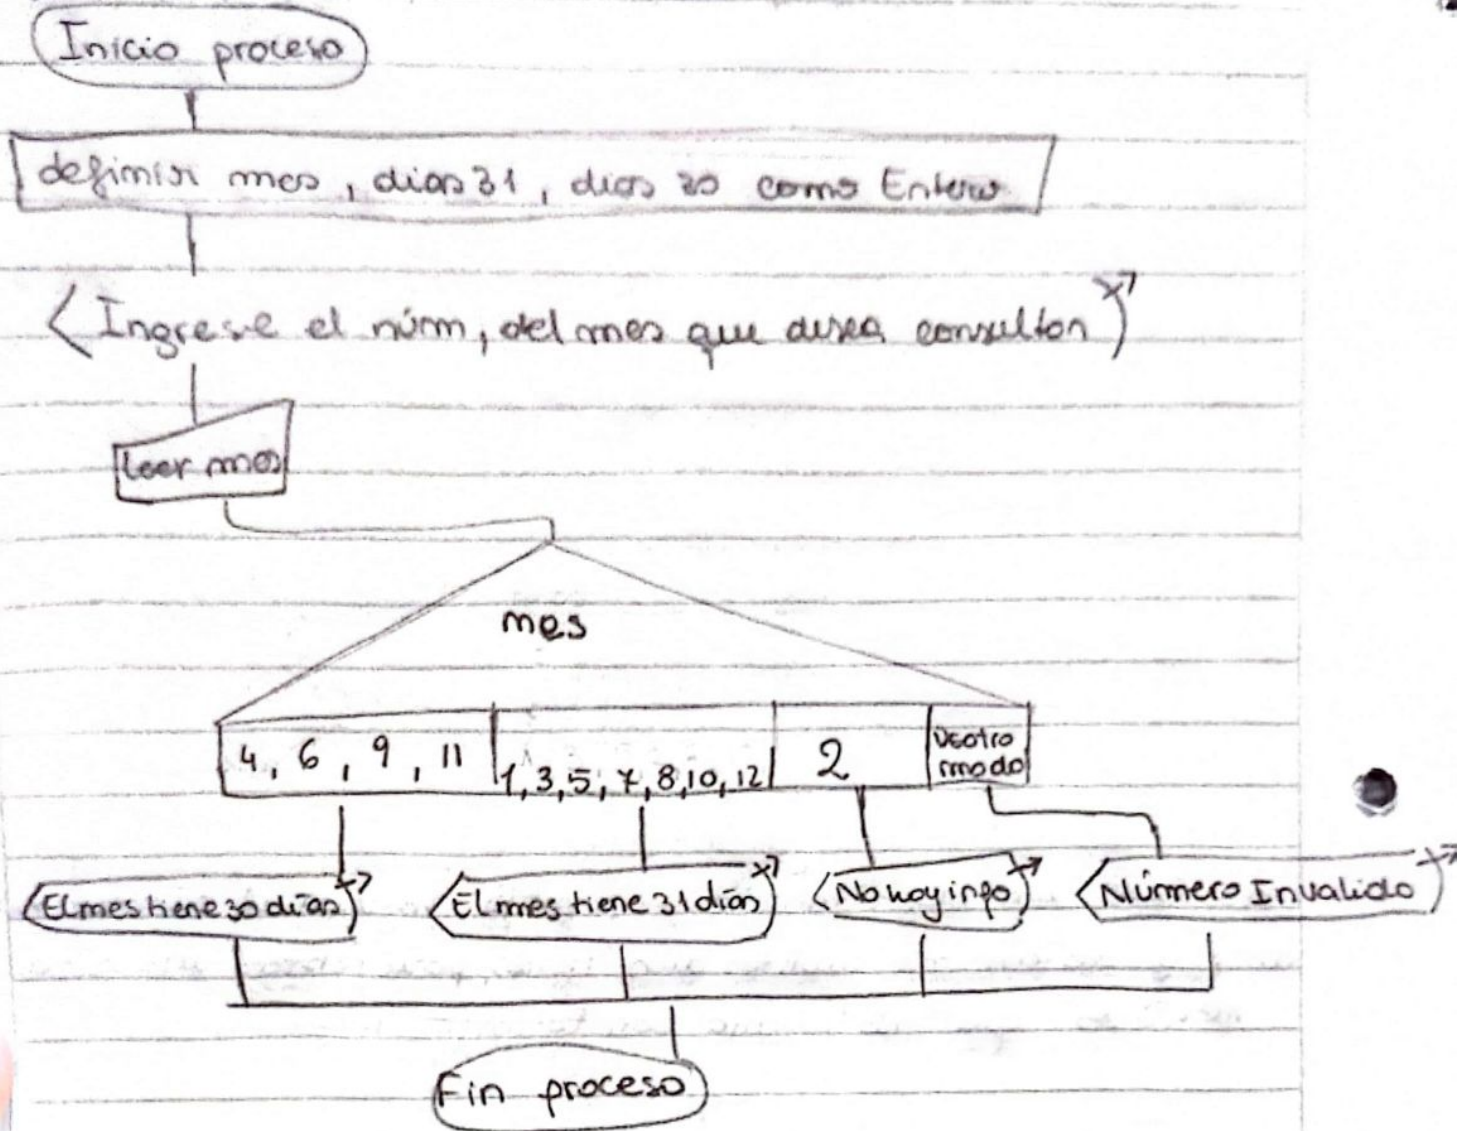 Inicio proceso
definir mes, dias 31, dias 30 como Entero
Ingrese el núm, del mes que desea consultar
leer mes
mes
4, 6, 9, 11
1, 3, 5, 7, 8, 10, 12
2
De otro
modo
El mes tiene 30 días
El mes tiene 31 días
No hay info
Número Invalido
Fin proceso